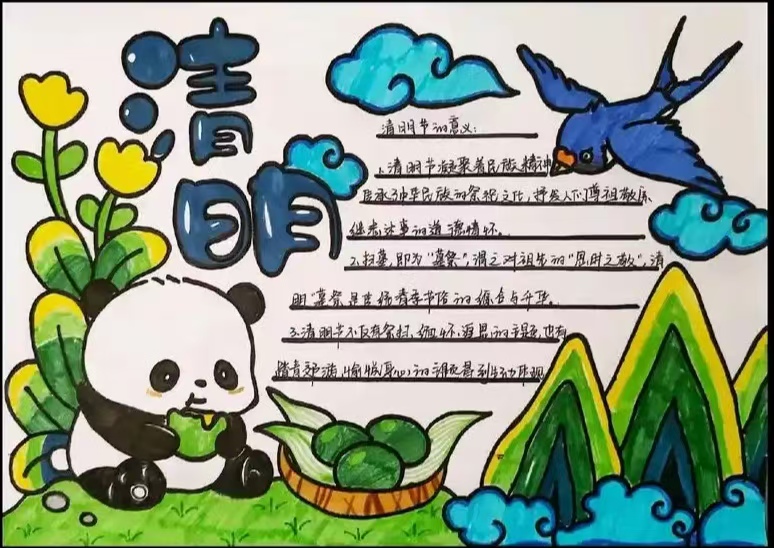 清明
清明节的意义:
1.清明节凝聚着民族精神
传承了中华民族的祭祀文化,抒发人们尊祖敬宗
继志述事的道德情怀。
2.扫墓,即为"墓祭",谓之对祖先的"思时之敬",清
明"墓祭是传统春季节俗的综合与升华。
3.清明节不仅有祭扫、缅怀、追思的主题,也有
踏青郊游、愉悦身心的